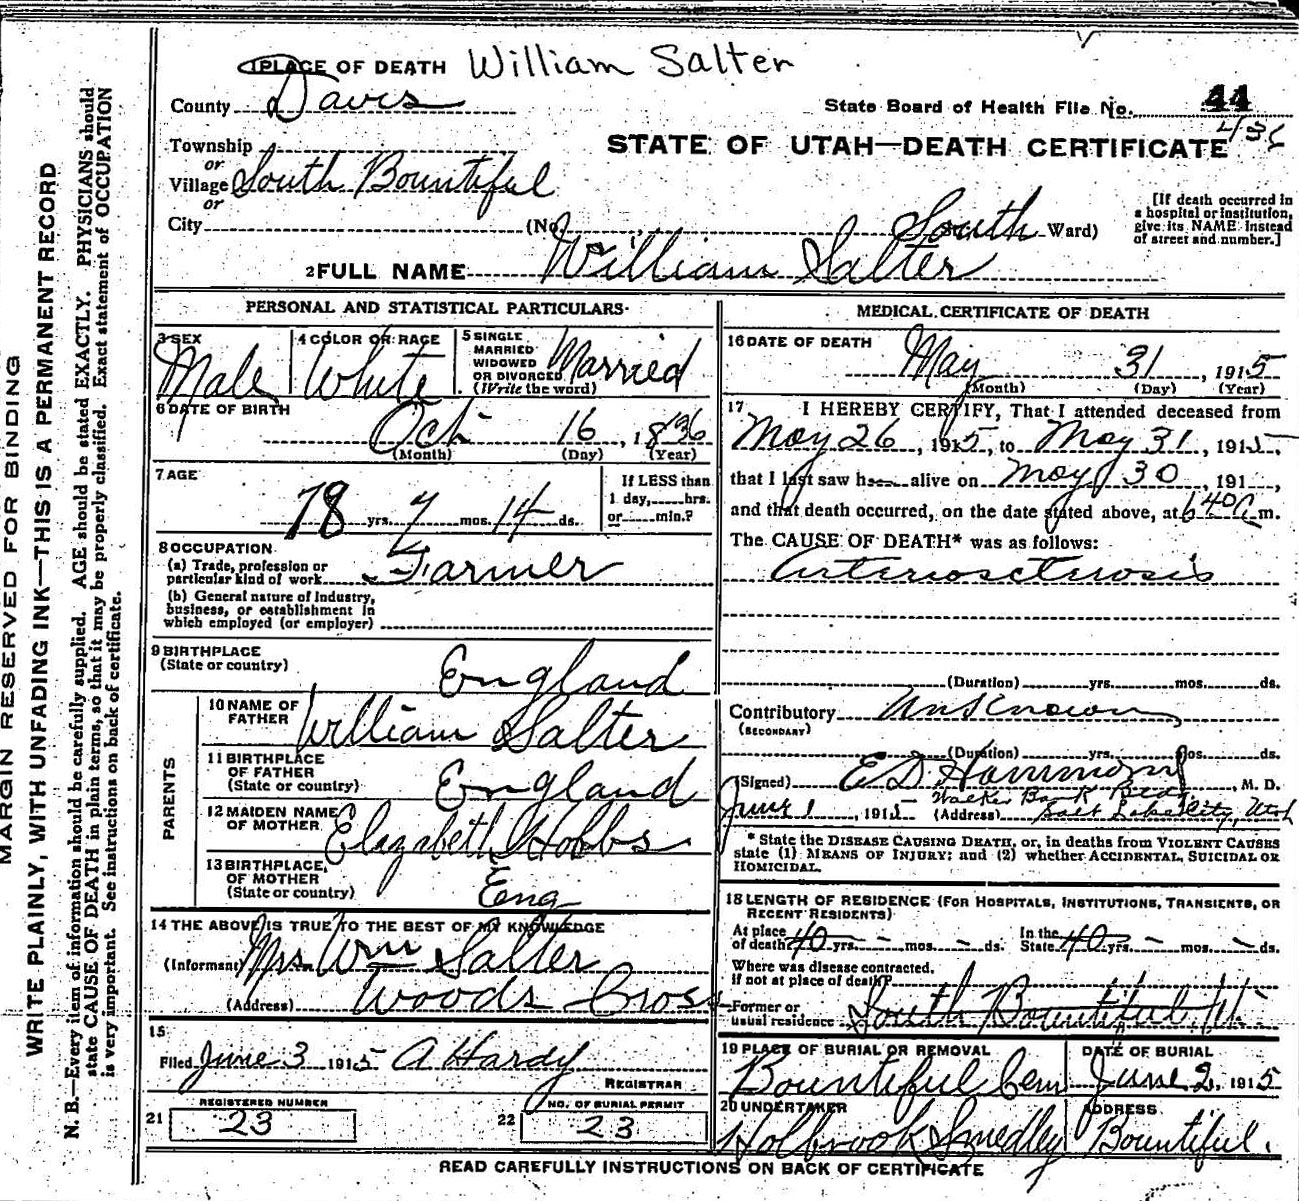 1 PLACE OF DEATH William Salter
County Davis
State Board of Health File No. 44
436
Township
STATE OF UTAH—DEATH CERTIFICATE
or
Village South Bountiful
or
City (No. South Ward)
[If death occurred in a hospital or institution, give its NAME instead of street and number.]
2 FULL NAME William Salter
PERSONAL AND STATISTICAL PARTICULARS
3 SEX Male
4 COLOR OR RACE White
5 SINGLE MARRIED WIDOWED OR DIVORCED (Write the word) Married
6 DATE OF BIRTH
Oct 16, 1836
(Month) (Day) (Year)
7 AGE
78 yrs. 7 mos. 14 ds.
If LESS than
1 day, hrs.
or min.?
8 OCCUPATION
(a) Trade, profession or
particular kind of work Farmer
(b) General nature of industry,
business, or establishment in
which employed (or employer)
9 BIRTHPLACE
(State or country) England
PARENTS
10 NAME OF
FATHER William Salter
11 BIRTHPLACE
OF FATHER
(State or country) England
12 MAIDEN NAME
OF MOTHER Elizabeth Hobbs
13 BIRTHPLACE,
OF MOTHER
(State or country) Eng
14 THE ABOVE IS TRUE TO THE BEST OF MY KNOWLEDGE
(Informant) Mrs Wm Salter
(Address) Woods Cross
15
Filed June 3 1915 A Hardy
REGISTRAR
REGISTERED NUMBER
21 23
NO. OF BURIAL PERMIT
22 23
MEDICAL CERTIFICATE OF DEATH
16 DATE OF DEATH
May 31, 1915
(Month) (Day) (Year)
17 I HEREBY CERTIFY, That I attended deceased from
May 26, 1915, to May 31, 1915,
that I last saw h alive on May 30, 191,
and that death occurred, on the date stated above, at 640 m.
The CAUSE OF DEATH* was as follows:
Arteriosclerosis
(Duration) yrs. mos. ds.
Contributory Unknown
(SECONDARY)
(Duration) yrs. mos. ds.
(Signed) E D Hammond, M. D.
June 1, 1915 (Address) Walker Bank Bldg
Salt Lake City, Utah
* State the DISEASE CAUSING DEATH, or, in deaths from VIOLENT CAUSES
state (1) MEANS OF INJURY; and (2) whether ACCIDENTAL, SUICIDAL OR
HOMICIDAL.
18 LENGTH OF RESIDENCE (FOR HOSPITALS, INSTITUTIONS, TRANSIENTS, OR
RECENT RESIDENTS)
At place
of death 40 yrs. - mos. - ds.
In the
State 40 yrs. - mos. - ds.
Where was disease contracted,
if not at place of death?
Former or
usual residence South Bountiful
19 PLACE OF BURIAL OR REMOVAL
Bountiful Cem
DATE OF BURIAL
June 2, 1915
20 UNDERTAKER
Holbrook Smedley
ADDRESS
Bountiful.
READ CAREFULLY INSTRUCTIONS ON BACK OF CERTIFICATE
MARGIN RESERVED FOR BINDING
WRITE PLAINLY, WITH UNFADING INK—THIS IS A PERMANENT RECORD
N. B.—Every item of information should be carefully supplied. AGE should be stated EXACTLY. PHYSICIANS should
state CAUSE OF DEATH in plain terms, so that it may be properly classified. Exact statement of OCCUPATION
is very important. See instructions on back of certificate.